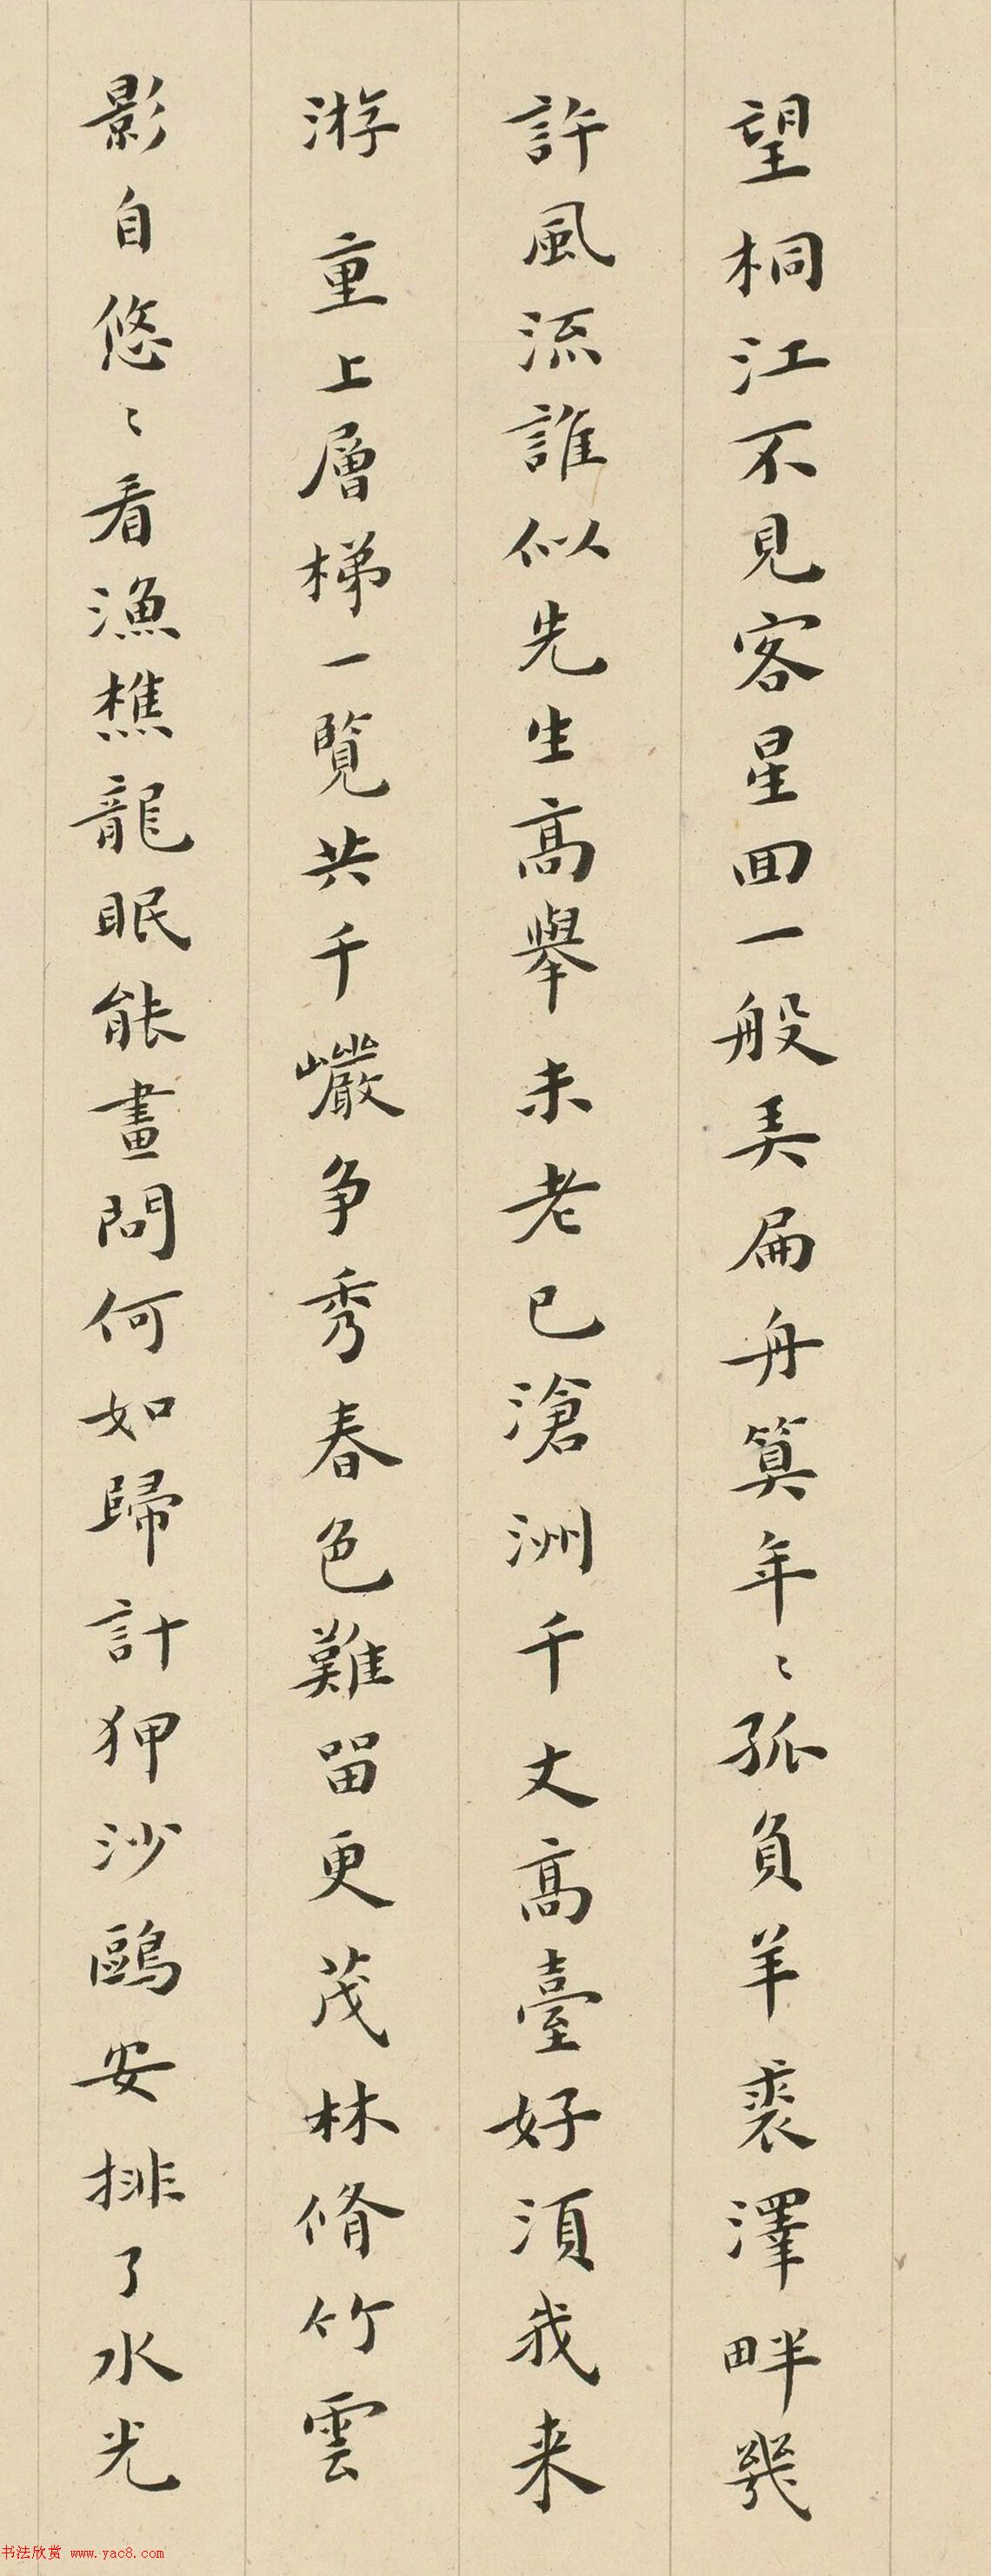 望桐江不見客星回一般弄扁舟算年〻孤負羊裘澤畔幾
許風流誰似先生高舉未老已滄洲千丈高臺好須我来
游 重上層梯一覧共千巖争秀春色難留更茂林脩竹雲
影自悠〻看漁樵龍眠能畫問何如歸計狎沙鷗安排了水光
书法欣赏 www.yac8.com